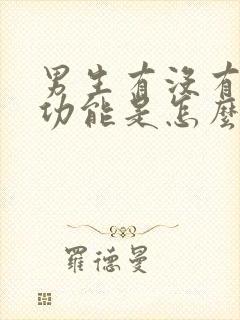 男生有没有
功能是怎麼
羅德曼